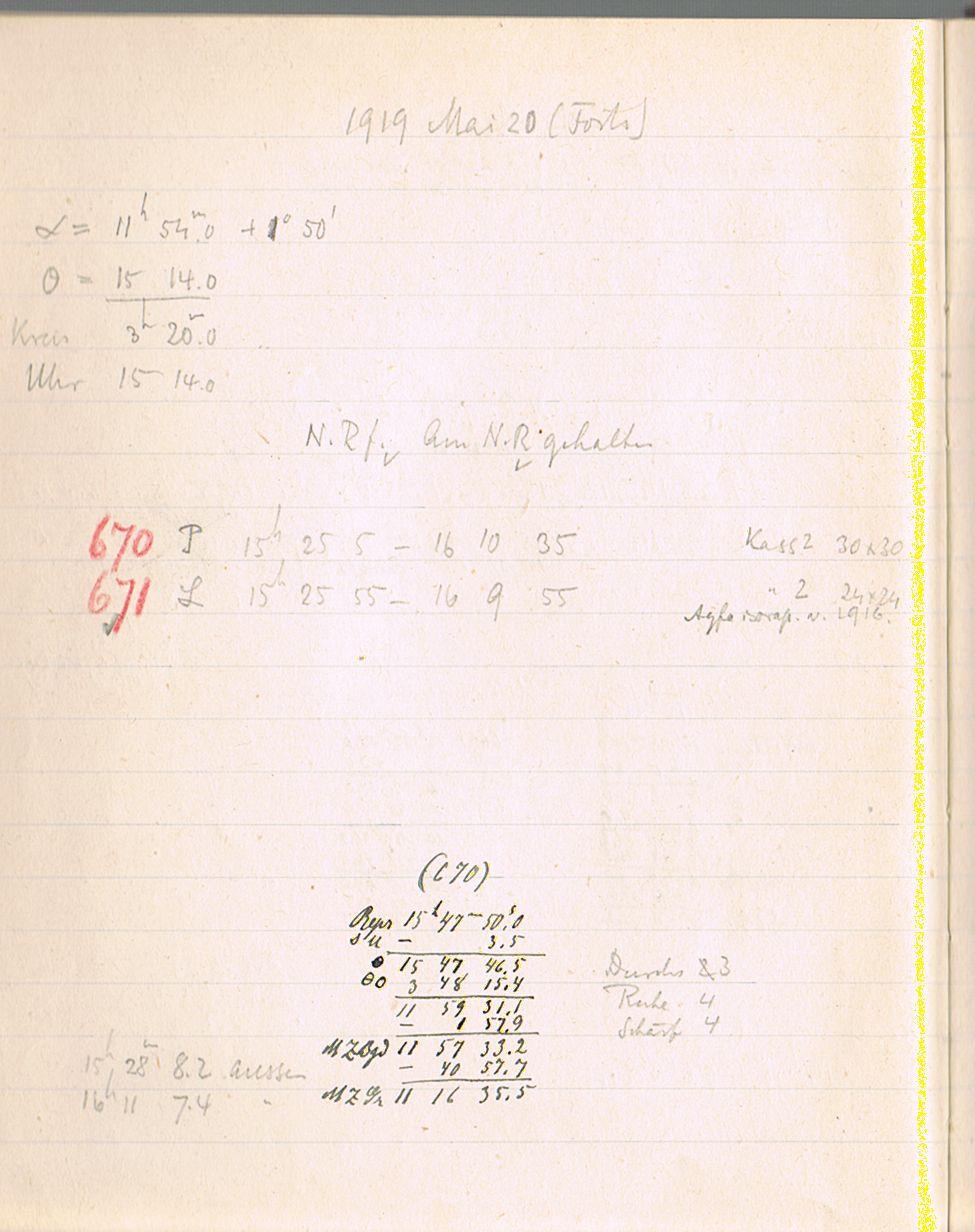 1919 Mai 20 (Forts)
α = 11h 54m.0 + 1° 50'
θ = 15 14.0
Kreis 3h 20m.0
Uhr 15 14.0
N.R f. Am N.R gehalten
670 P 15h 25 5 – 16 10 35 Kass 2 30x30
671 L 15h 25 55 – 16 9 55 " 2 24x24
Agfa isorap. v. 1916.
(670)
Reps 15h 47m 50s.0
– 3.5
θ 15 47 46.5
θ0 3 48 15.4
11 59 31.1
– 1 57.9
MZBgd 11 57 33.2
– 40 57.7
MZGr 11 16 35.5
Durchs 3
Ruhe 4
Schärf 4
15h 28m 8.2 aussen
16h 11 7.4 "